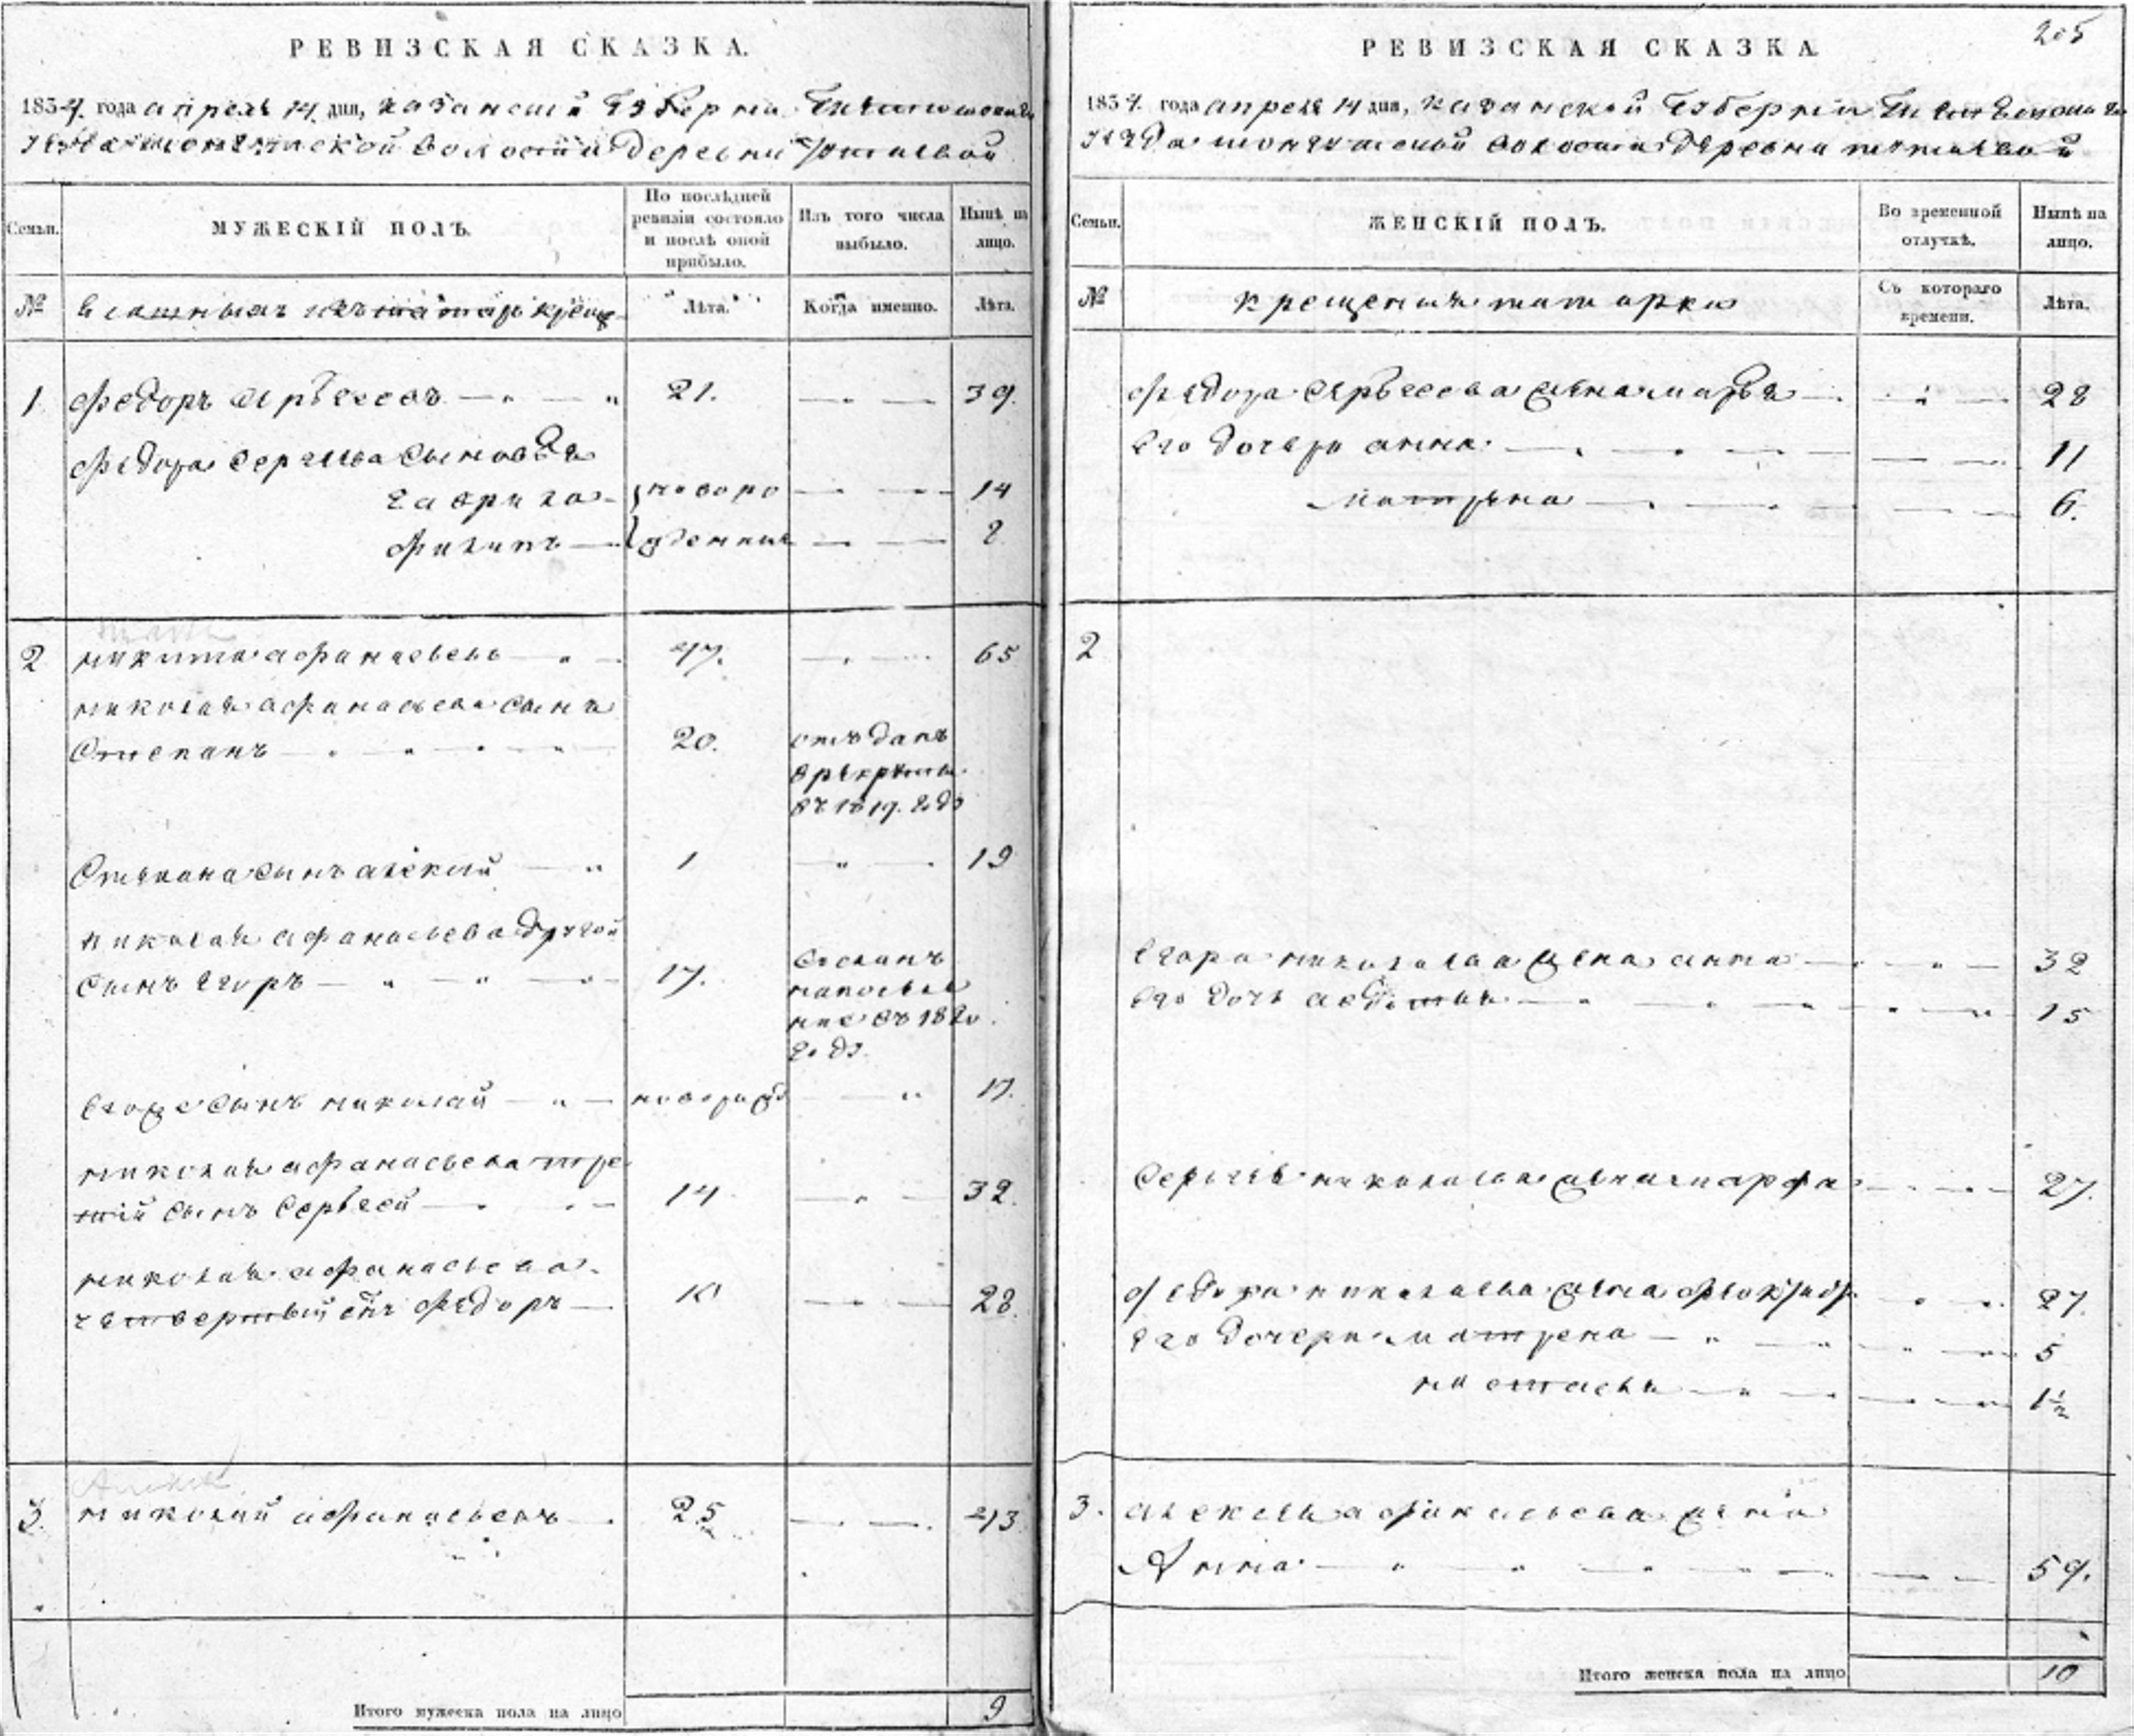 РЕВИЗСКАЯ СКАЗКА.
1834 года апреля 14 дня, казанской Губернии
волости деревни
Семьи.
МУЖЕСКІЙ ПОЛЪ.
По послѣдней ревизіи состояло и послѣ оной прибыло.
Изъ того числа выбыло.
Нынѣ на лицо.
№
Лѣта.
Когда именно.
Лѣта.
1 федоръ серъгеевъ 21. 39.
федора сергеева сыновья
гаврила новоро 14
филипъ жденныя 8
2 никита афанасьевъ 47. 65
николая афанасьева сынъ
Степанъ 20. отъданъ
в рекруты
въ 1819. году
Степана сынъ алексей 1 19
николая афанасьева другой
сынъ егоръ 17. Сосланъ
на поселе
ние въ 1820.
году
егора сынъ николай новорожд 17.
николая афанасьева тре
тий сынъ Серъгей 14 32.
николая афанасьева
четвертый снъ федоръ 10 28.
3. николай афанасьевъ 25 43
Итого мужеска пола на лицо 9
205
РЕВИЗСКАЯ СКАЗКА.
1834. года апреля 14 дня, казанской Губернии
уезда волости деревни
Семьи.
ЖЕНСКІЙ ПОЛЪ.
Во временной отлучкѣ.
Нынѣ на лицо.
№
крещеныя татарки
Съ котораго времени.
Лѣта.
федора серъгеева жена марья 28
его дочери анна 11
матрена 6.
2
егора николаева жена анна 32
его дочь авдотья 15
Сергея николаева жена марфа 27.
федора николаева жена 27.
его дочери матрена 5
настасья 1½
3. алексея афанасьева жена
Анна 59.
Итого женска пола на лицо 10